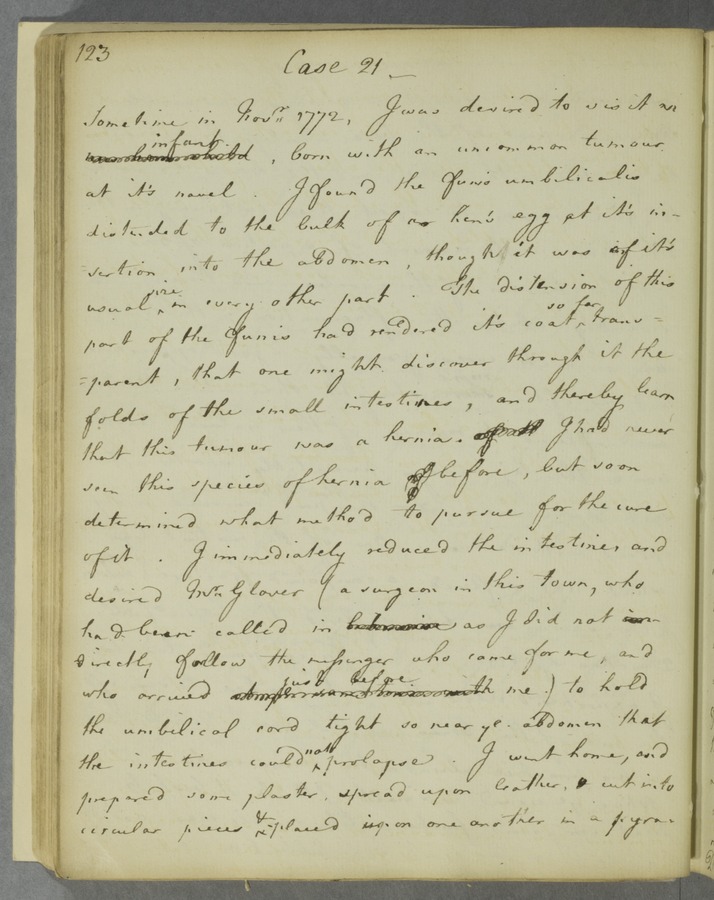 123
Case 21
Sometime in Nov.r 1772, I was desired to visit an
infant
new born child, born with an uncommon tumour
at it's navel. I found the funis umbilicalis
distended to the bulk of an hen's egg at it's in-
-sertion into the abdomen, though it was of it's
usual size in every other part. The distension of this
part of the funis had rendered it's coat so far trans=
=parent, that one might discover through it the
folds of the small intestines, and thereby learn
that this tumour was a hernia. I had never
seen this species of hernia before, but soon
determined what method to pursue for the cure
of it. I immediately reduced the intestines and
desired Mr. Glover (a surgeon in this town, who
had been called in as I did not
directly follow the messenger who came for me, and
just before
who arrived me) to hold
the umbilical cord tight so near ye. abdomen that
the intestines could not prolapse. I went home, and
prepared some plaster, spread upon leather, cut into
circular pieces & placed upon one another in a pyra-